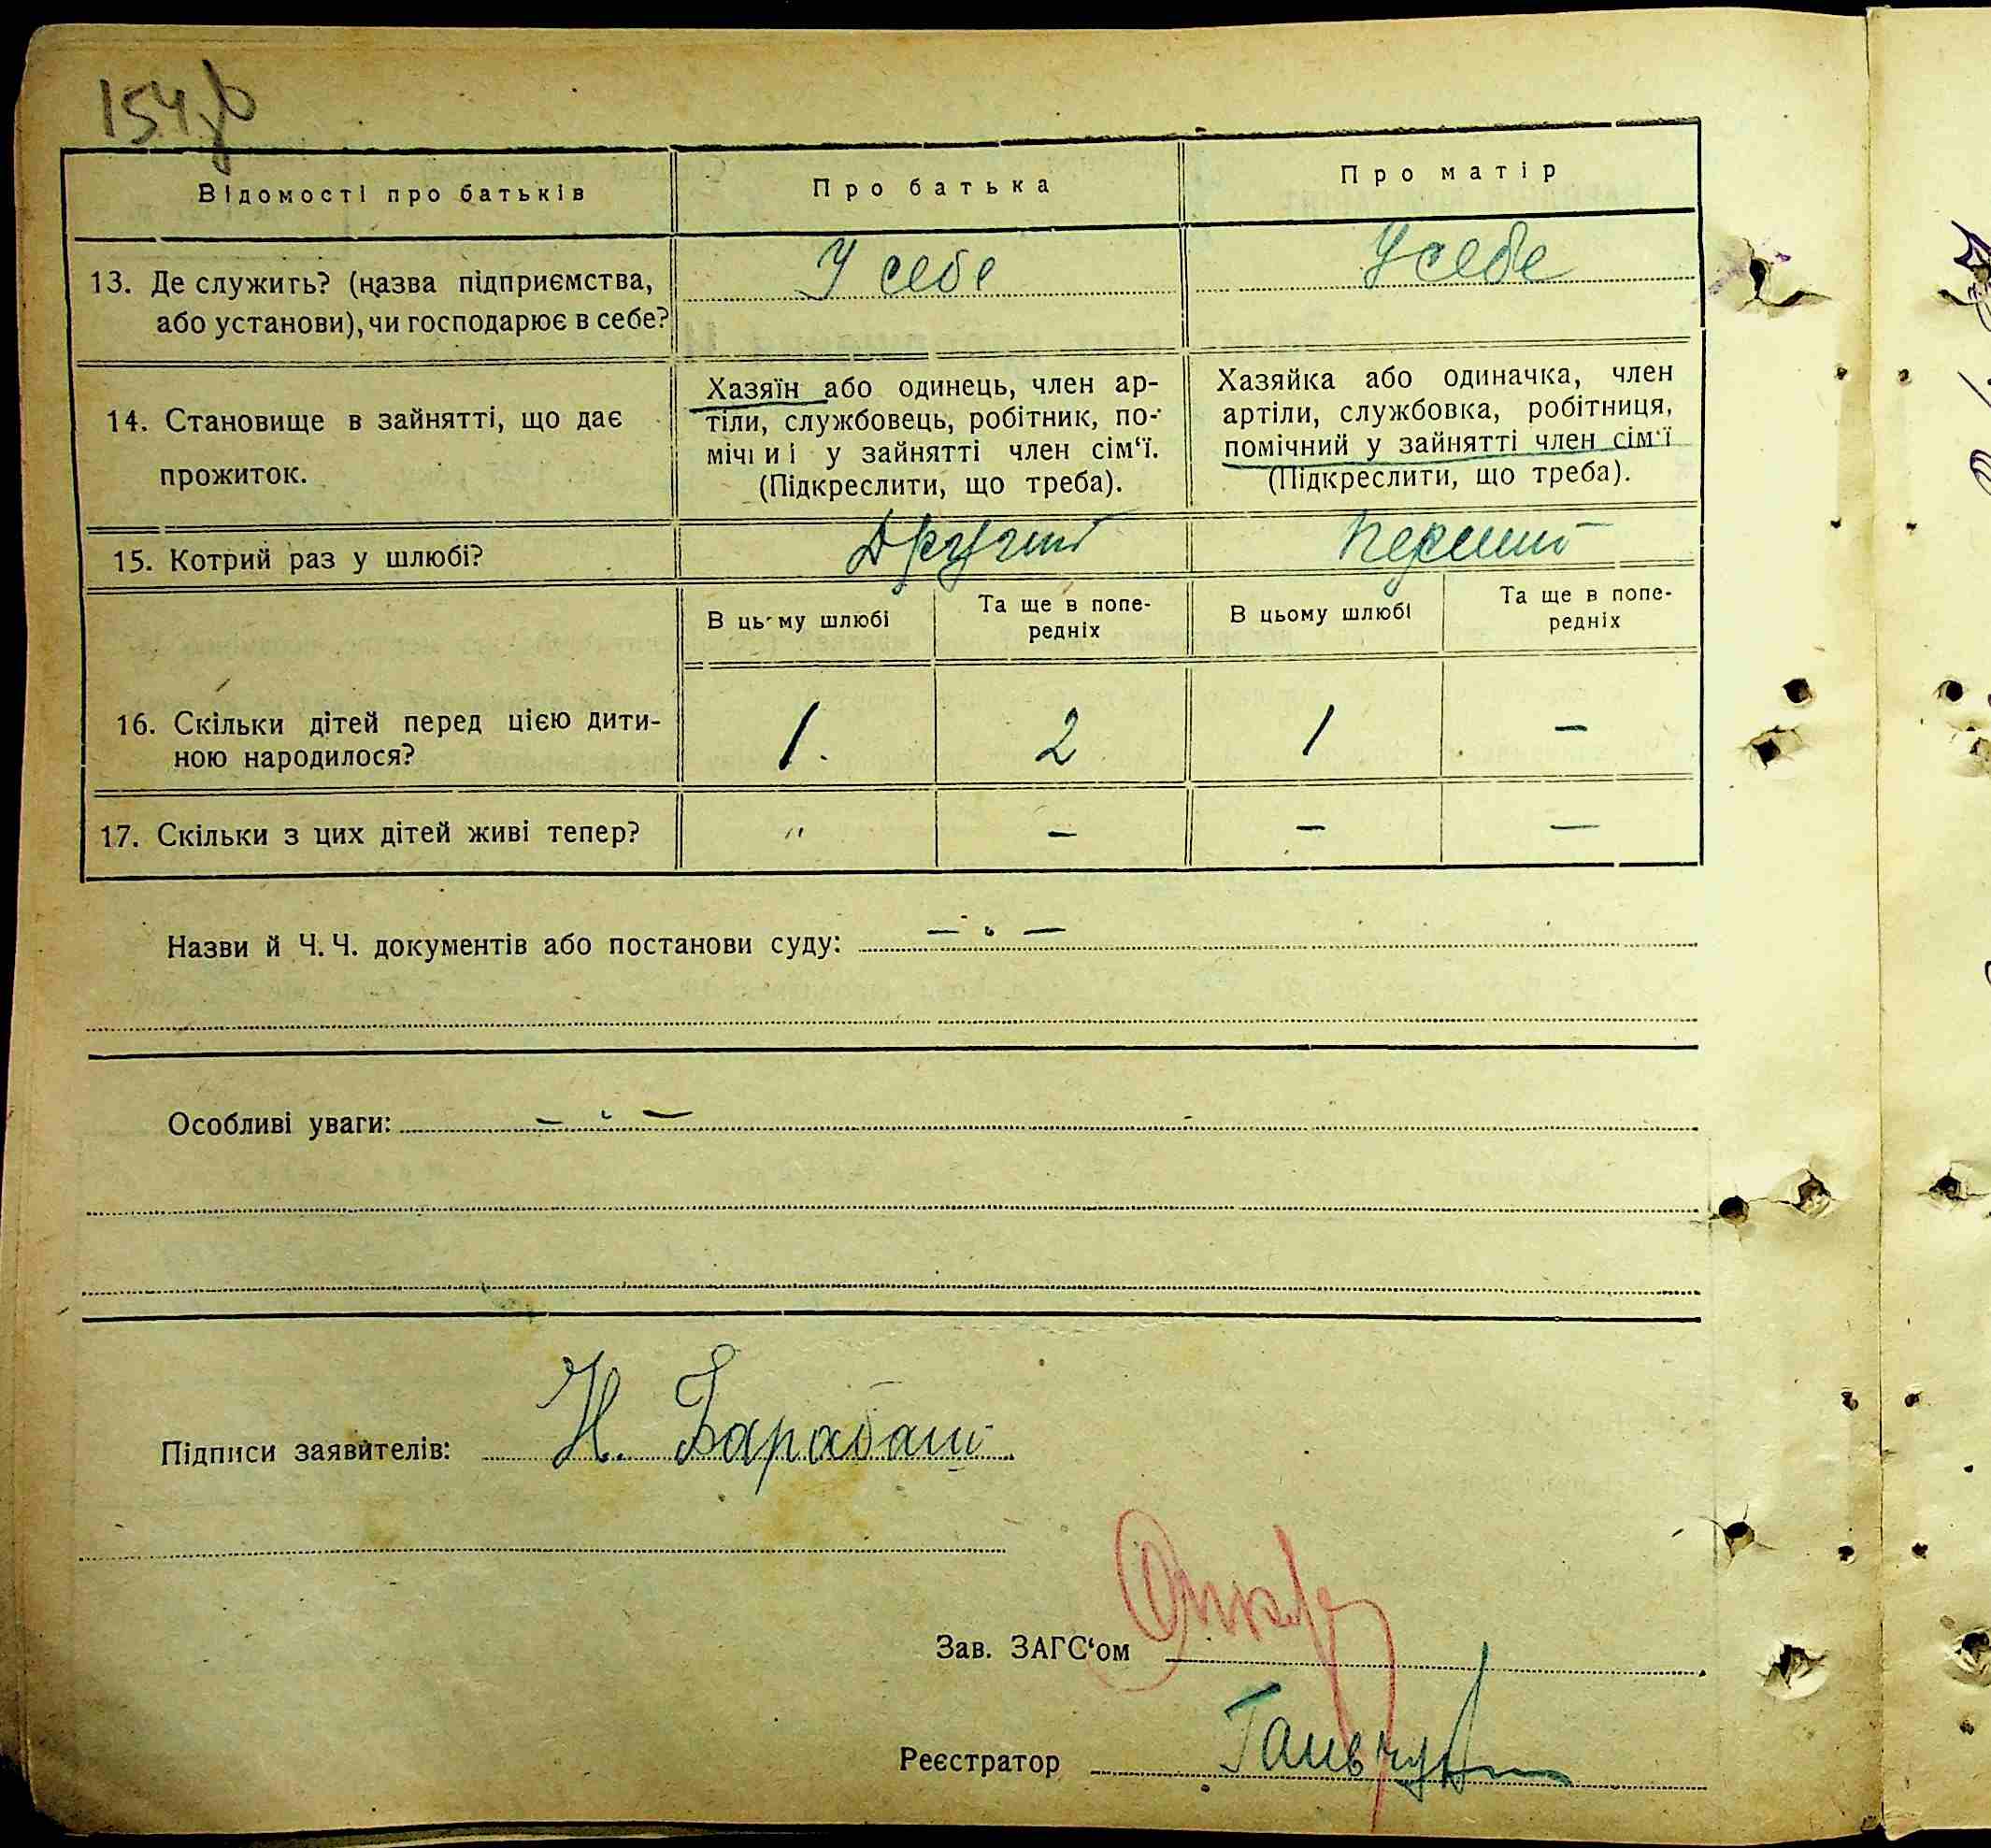 154
Відомості про батьків
Про батька
Про матір
13. Де служить? (назва підприємства,
або установи), чи господарює в себе?
У себе
У себе
14. Становище в зайнятті, що дає
прожиток.
Хазяїн або одинець, член ар-
тіли, службовець, робітник, по-
мічниі у зайнятті член сім‘ї.
(Підкреслити, що треба).
Хазяйка або одиначка, член
артіли, службовка, робітниця,
помічний у зайнятті член сім‘ї
(Підкреслити, що треба).
15. Котрий раз у шлюбі?
Другий
Перший
В цьму шлюбі
Та ще в попе-
редніх
В цьому шлюбі
Та ще в попе-
редніх
16. Скільки дітей перед цією дити-
ною народилося?
1.
2
1
–
17. Скільки з цих дітей живі тепер?
"
–
–
–
Назви й Ч. Ч. документів або постанови суду: – " –
Особливі уваги: – " –
Підписи заявителів: Н. Барабаш
Зав. ЗАГС‘ом
Реєстратор